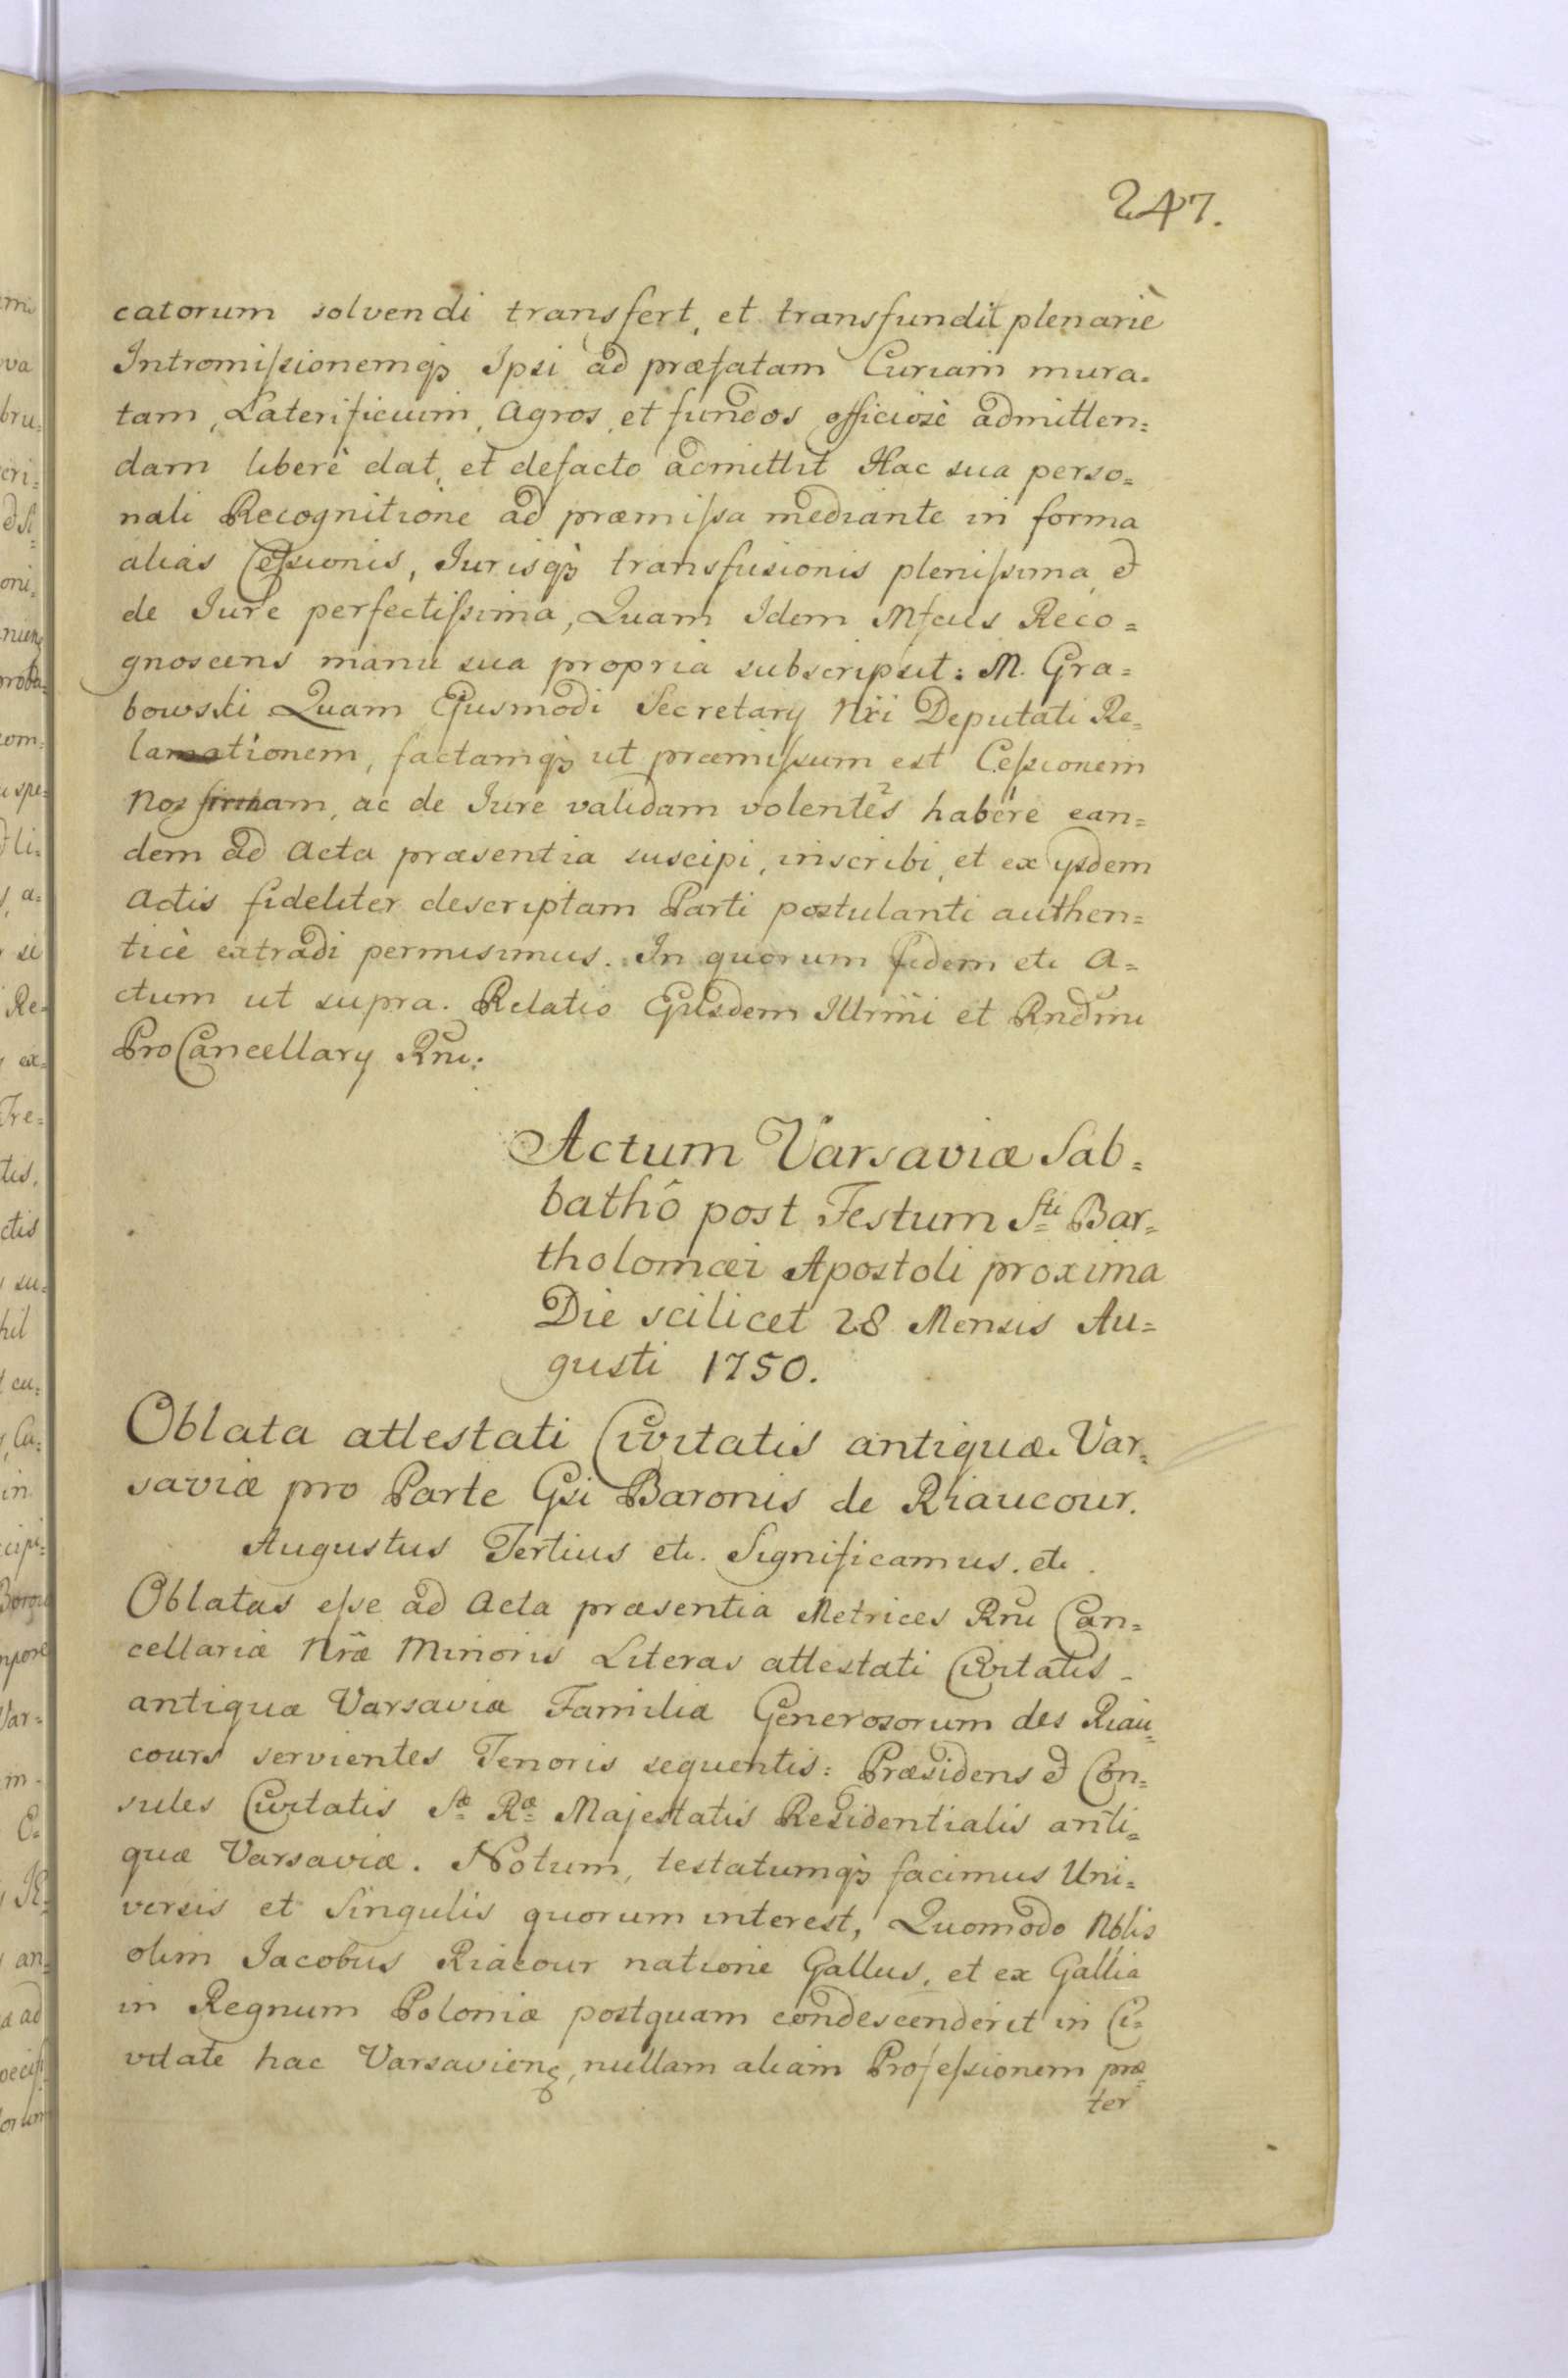 247.
catorum solvendi transfert, et transfundit plenariè
Intromissionemq̃ Ipsi ad præfatam Curiam mura=
tam, Laterificium, Agros, et fundos officiosè admitten=
dam liberè dat, et defacto admittit Hac sua perso=
nali Recognitione ad præmissa mediante in forma
alias Cessionis, Jurisq̃ transfusionis plenissima, et
de Jure perfectissima, Quam Idem Mfcus Reco=
gnoscens manu sua propria subscripsit: M. Gra=
bowski Quam Ejusmodi Secretarÿ Nri Deputati Re=
lationem, factamq̃ ut præmissum est Cessionem
Nos firmam, ac de Jure validam volentes habere ean=
dem ad Acta præsentia suscipi, inscribi, et ex ÿsdem
Actis fideliter descriptam Parti postulanti authen=
ticè extradi permisimus. In quorum fidem etc A=
ctum ut supra. Relatio Ejusdem Illrmi et Rndmi
ProCancellarÿ Rni.
Actum Varsaviæ Sab=
bathô post Festum Sti Bar=
tholomæi Apostoli proxima
Die scilicet 28 Mensis Au=
gusti 1750.
Oblata attestati Civitatis antiquæ Var=
saviæ pro Parte Gsi Baronis de Riaucour.
Augustus Tertius etc. Significamus. etc.
Oblatas esse ad Acta præsentia Metrices Rni Can=
cellariæ Nræ Minoris Literas attestati Civitatis
antiquæ Varsaviæ Familiæ Generosorum des Riau=
cours servientes Tenoris sequentis: Præsidens et Con=
sules Civitatis Sæ Ræ Majestatis Residentialis anti=
quæ Varsaviæ. Notum, testatumq̃ facimus Uni=
versis et Singulis quorum interest, Quomodo Nblis
olim Jacobus Riacour natione Gallus, et ex Gallia
in Regnum Poloniæ postquam condescenderit in Ci=
vitate hac Varsavien, nullam aliam Professionem præ=
ter